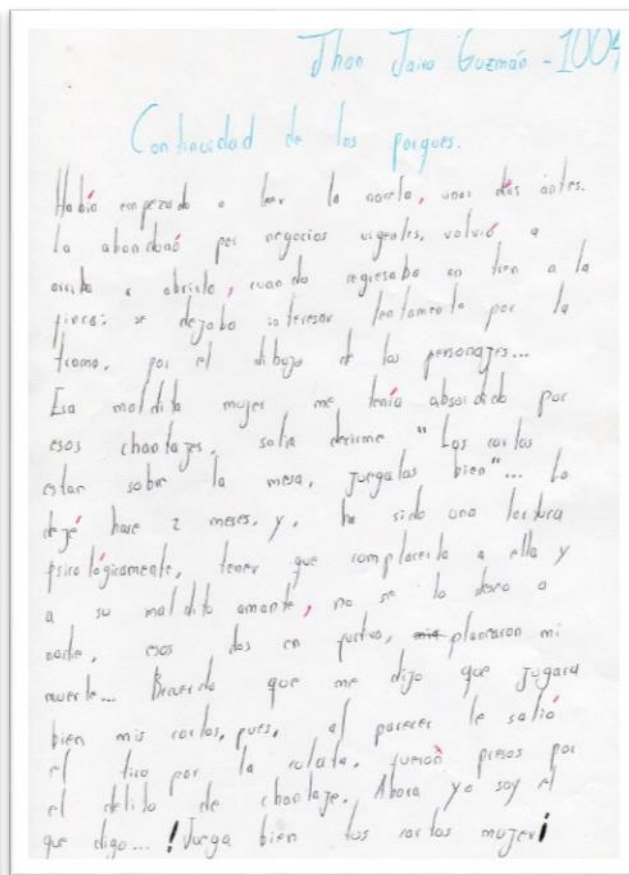 Jhon Jairo Guzmán - 1004
Continuidad de los parques.
Había empezado a leer la novela, unos días antes.
La abandonó por negocios urgentes, volvió a
a abrirla, cuando regresaba en tren a la
finca; se dejaba interesar lentamente por la
trama, por el dibujo de los personajes...
Esa maldita mujer me tenía absordido por
esos chantajes, solia decirme "Las cartas
estan sobre la mesa, juegalas bien"... La
dejé hase 2 meses, y, ha sido una tortura
psicológicamente, tener que complacerla a ella y
a su maldito amante, no se lo deseo a
nadie, esos dos en furtivo, planearon mi
muerte... Recuerdo que me dijo que jugara
bien mis cartas, pues, al parecer le salió
el tiro por la culata, fueron presos por
el delito de chantaje. Ahora yo soy el
que digo... ! Juega bien tus cartas mujer¡